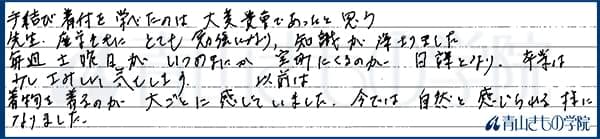 手結び着付を学べたのは大変貴重であったと思う
先生、座学ともに とても勉強になり、知識が深まりました
毎週土曜日が いつのまにか 室町にくるのが 日課となり、卒業は
少しさみしい気もします。 以前は
着物を着るのが 大ごとに感じていました。今では 自然と感じられる様に
なりました。
青山きもの学院